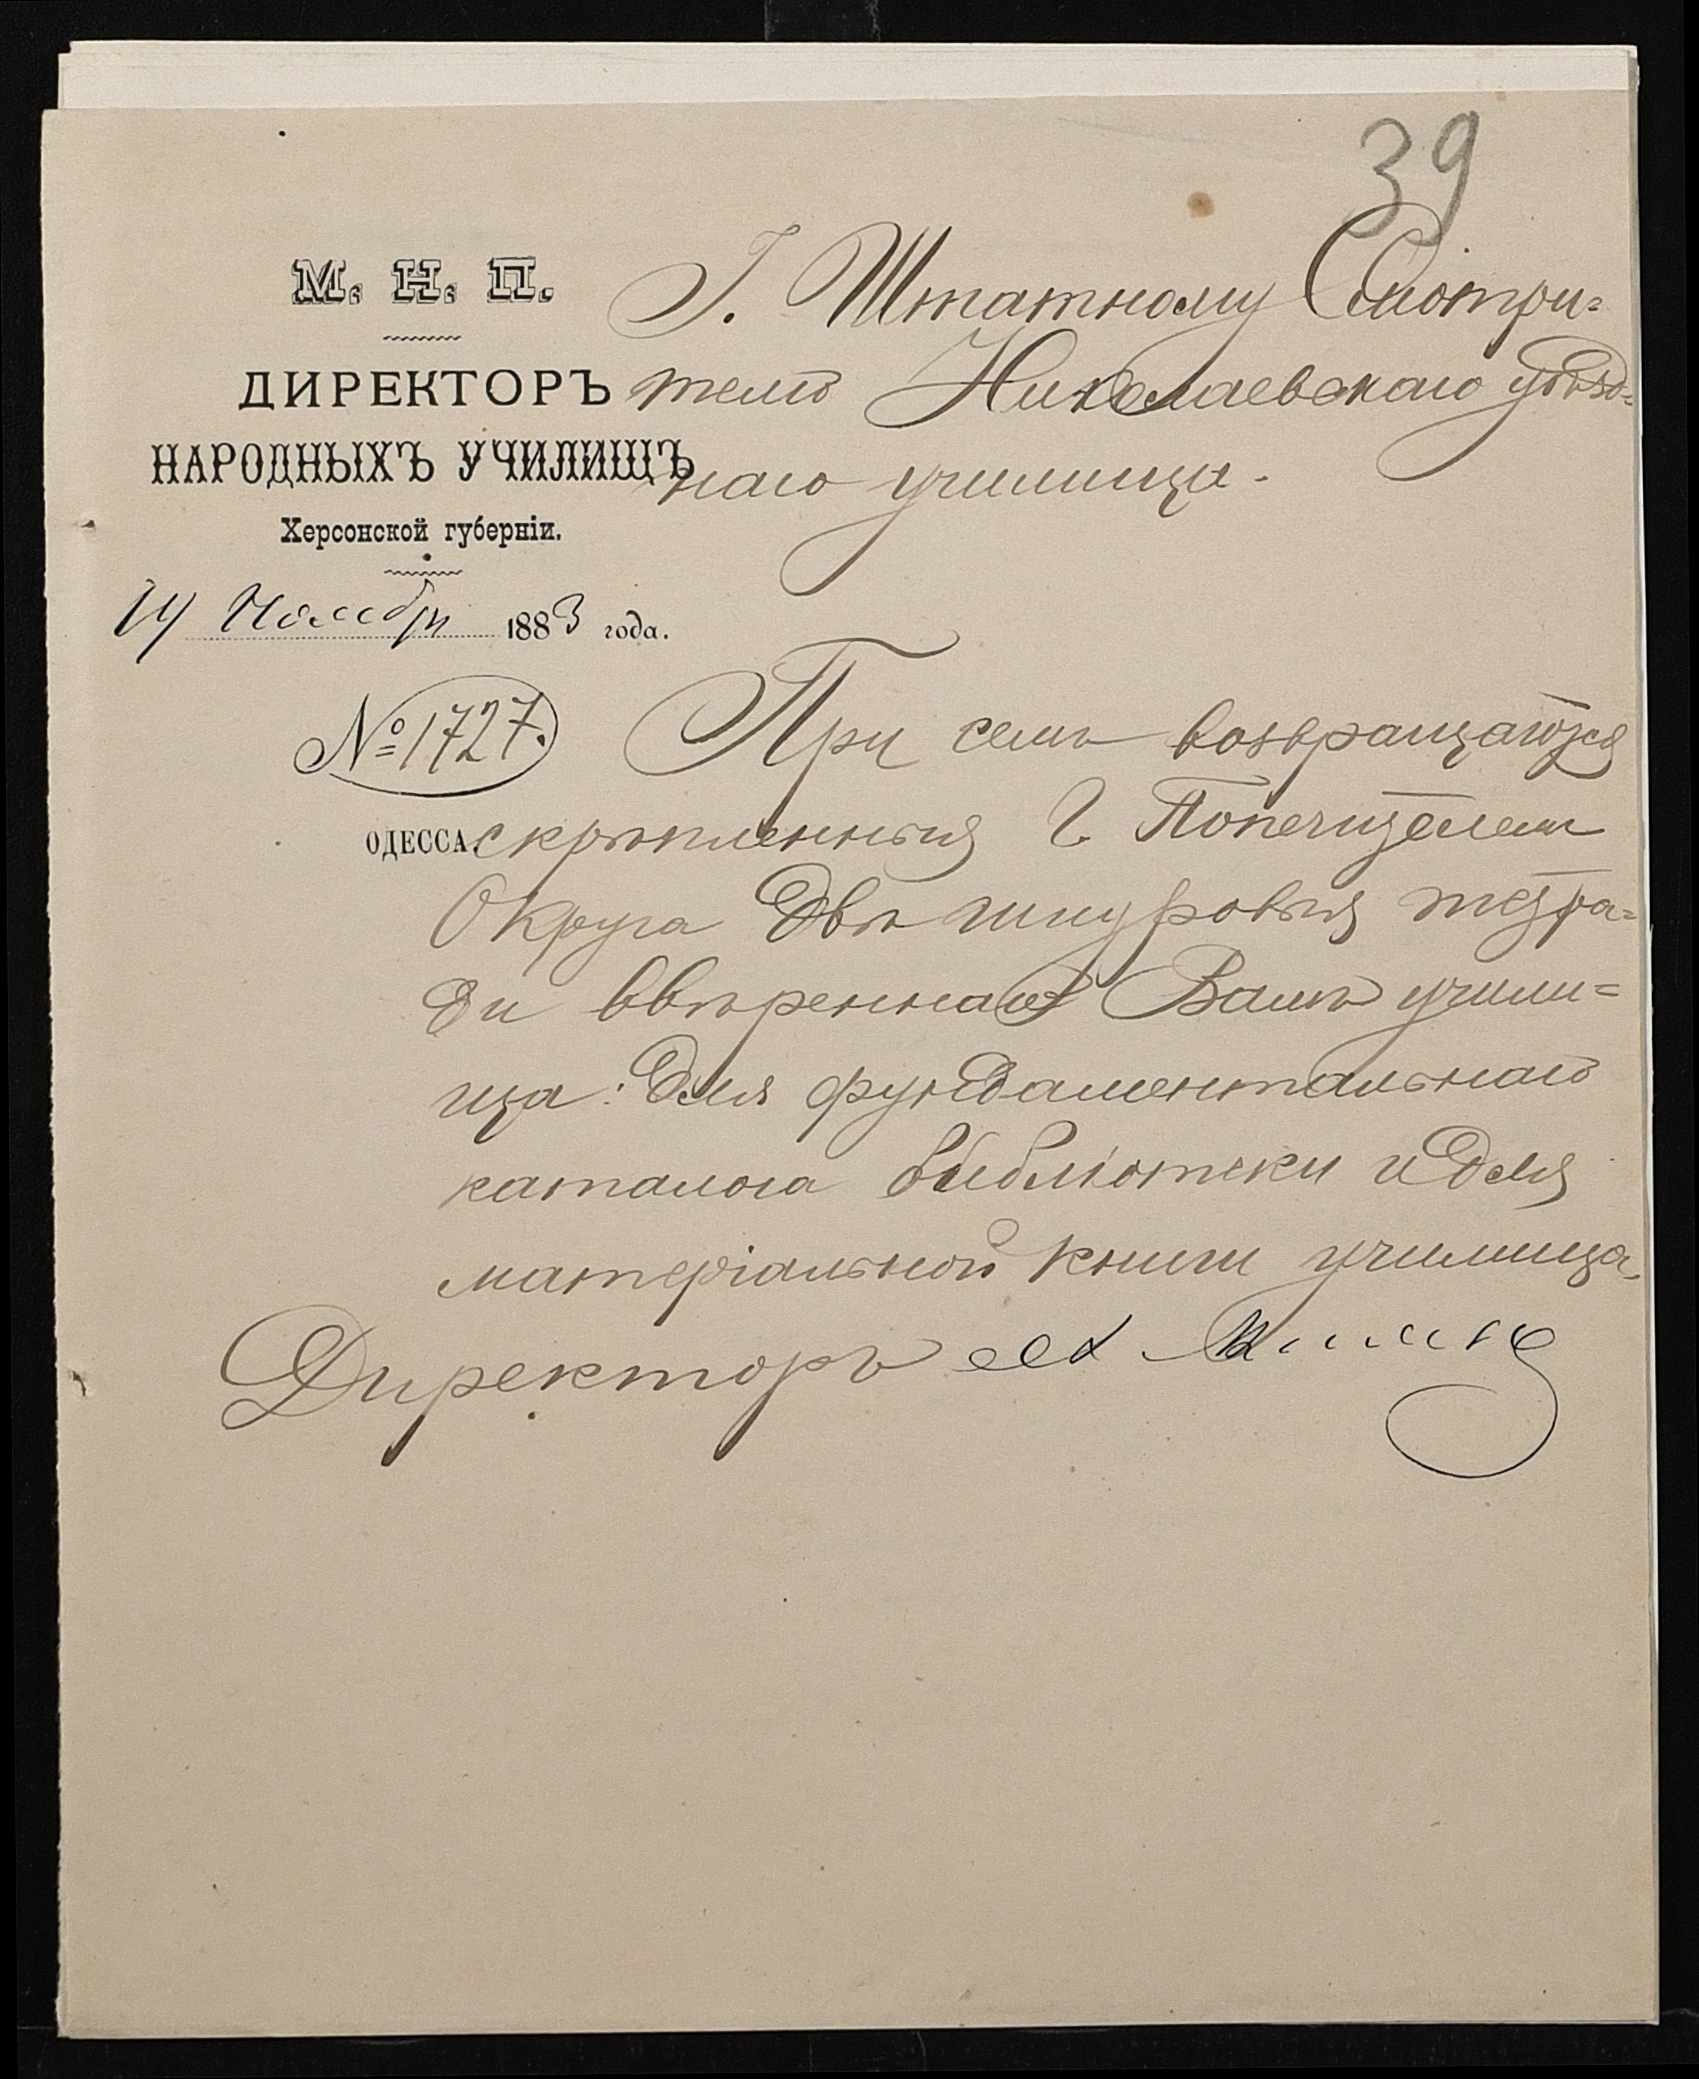 39
М. Н. П.
ДИРЕКТОРЪ
НАРОДНЫХЪ УЧИЛИЩЪ
Херсонской губерніи.
14 Ноября 1883 года.
№ 1727.
ОДЕССА
Г. Штатному Смотри=
телю Николаевскаго уѣзд=
наго училища.
При семъ возвращаются
скрѣпленныя Г Попечителемъ
Округа двѣ шнуровыя тетра=
ди ввѣреннаго Вамъ учили=
ща: для фундаментальнаго
каталога библіотеки и для
матеріальной книги училища.
Директоръ